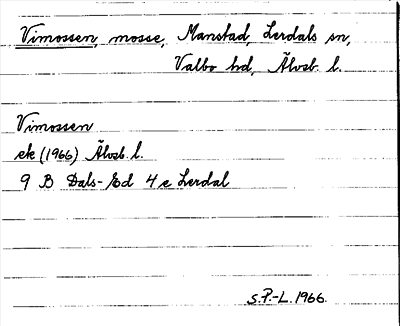 Vimossen, mosse, Manstad, Lerdals sn,
Valbo hd, Älvsb. l.
Vimossen
ek (1966) Älvsb. l.
9 B Dals-Ed 4 e Lerdal
S.P.-L. 1966.